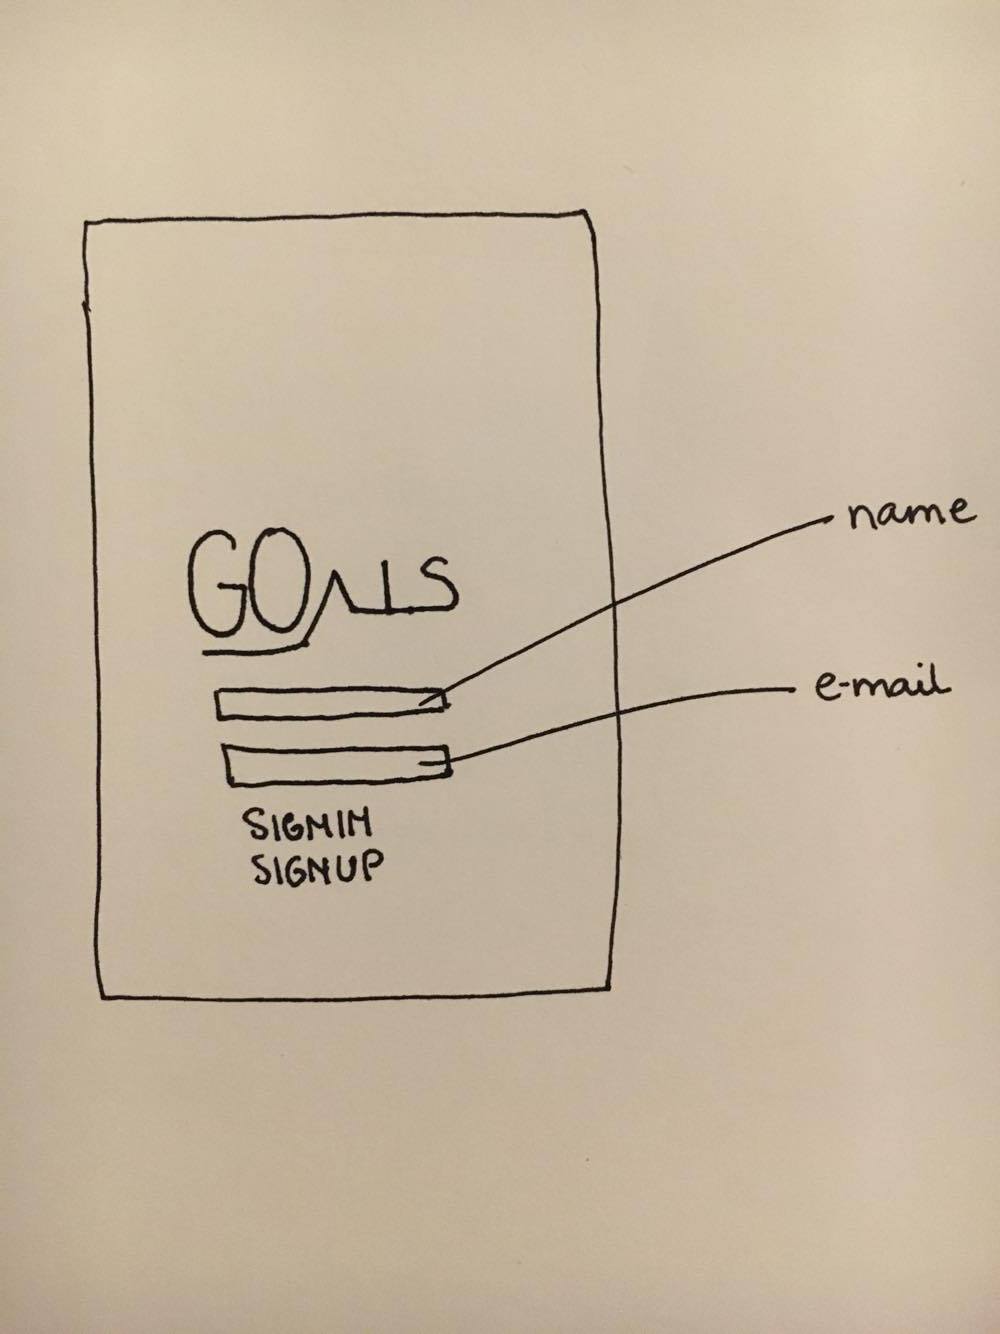 GOALS
name
e-mail
SIGNIN
SIGNUP